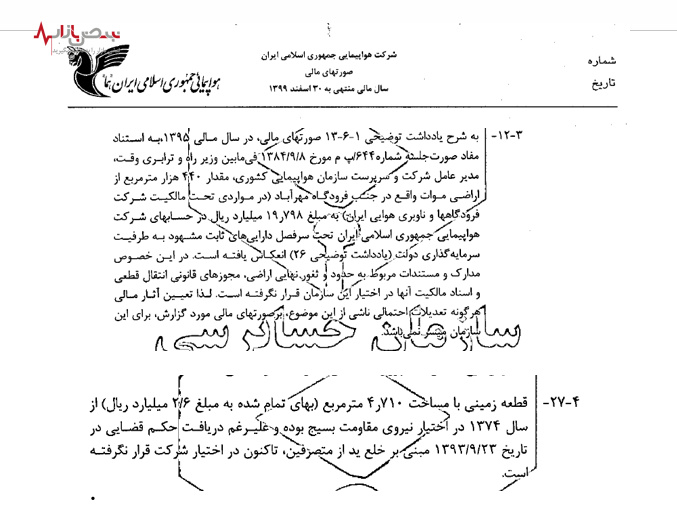 نبض بازار
هواپیمائی جمهوری اسلامی ایران "هما"
شرکت هواپیمایی جمهوری اسلامی ایران
صورتهای مالی
سال مالی منتهی به ۳۰ اسفند ۱۳۹۹
شماره
تاریخ
۱۲-۳- به شرح یادداشت توضیحی ۱-۶-۱۳ صورتهای مالی، در سال مالی ۱۳۹۵،به استناد
مفاد صورت‌جلسه شماره۶۴۴/پ م مورخ ۱۳۸۴/۹/۸ فی‌مابین وزیر راه و ترابری وقت،
مدیر عامل شرکت و سرپرست سازمان هواپیمایی کشوری، مقدار ۴۴۰ هزار مترمربع از
اراضی موات واقع در جنب فرودگاه مهرآباد (در مواردی تحت مالکیت شرکت
فرودگاهها و ناوبری هوایی ایران) به مبلغ ۱۹٫۷۹۸ میلیارد ریال در حسابهای شرکت
هواپیمایی جمهوری اسلامی ایران تحت سرفصل دارایی‌های ثابت مشهود به طرفیت
سرمایه‌گذاری دولت (یادداشت توضیحی ۲۶) انعکاس یافته است. در این خصوص
مدارک و مستندات مربوط به حدود و ثغور نهایی اراضی، مجوزهای قانونی انتقال قطعی
و اسناد مالکیت آنها در اختیار این سازمان قرار نگرفته است. لذا تعیین آثار مالی
هرگونه تعدیلات احتمالی ناشی از این موضوع، برصورتهای مالی مورد گزارش، برای این
سازمان میسر نمی‌باشد.
سازمان حسابرسی
۲۷-۴- قطعه زمینی با مساحت ۴٫۷۱۰ مترمربع (بهای تمام شده به مبلغ ۲/۶ میلیارد ریال) از
سال ۱۳۷۴ در اختیار نیروی مقاومت بسیج بوده و علیرغم دریافت حکم قضایی در
تاریخ ۱۳۹۳/۹/۲۳ مبنی بر خلع ید از متصرفین، تاکنون در اختیار شرکت قرار نگرفته
است.